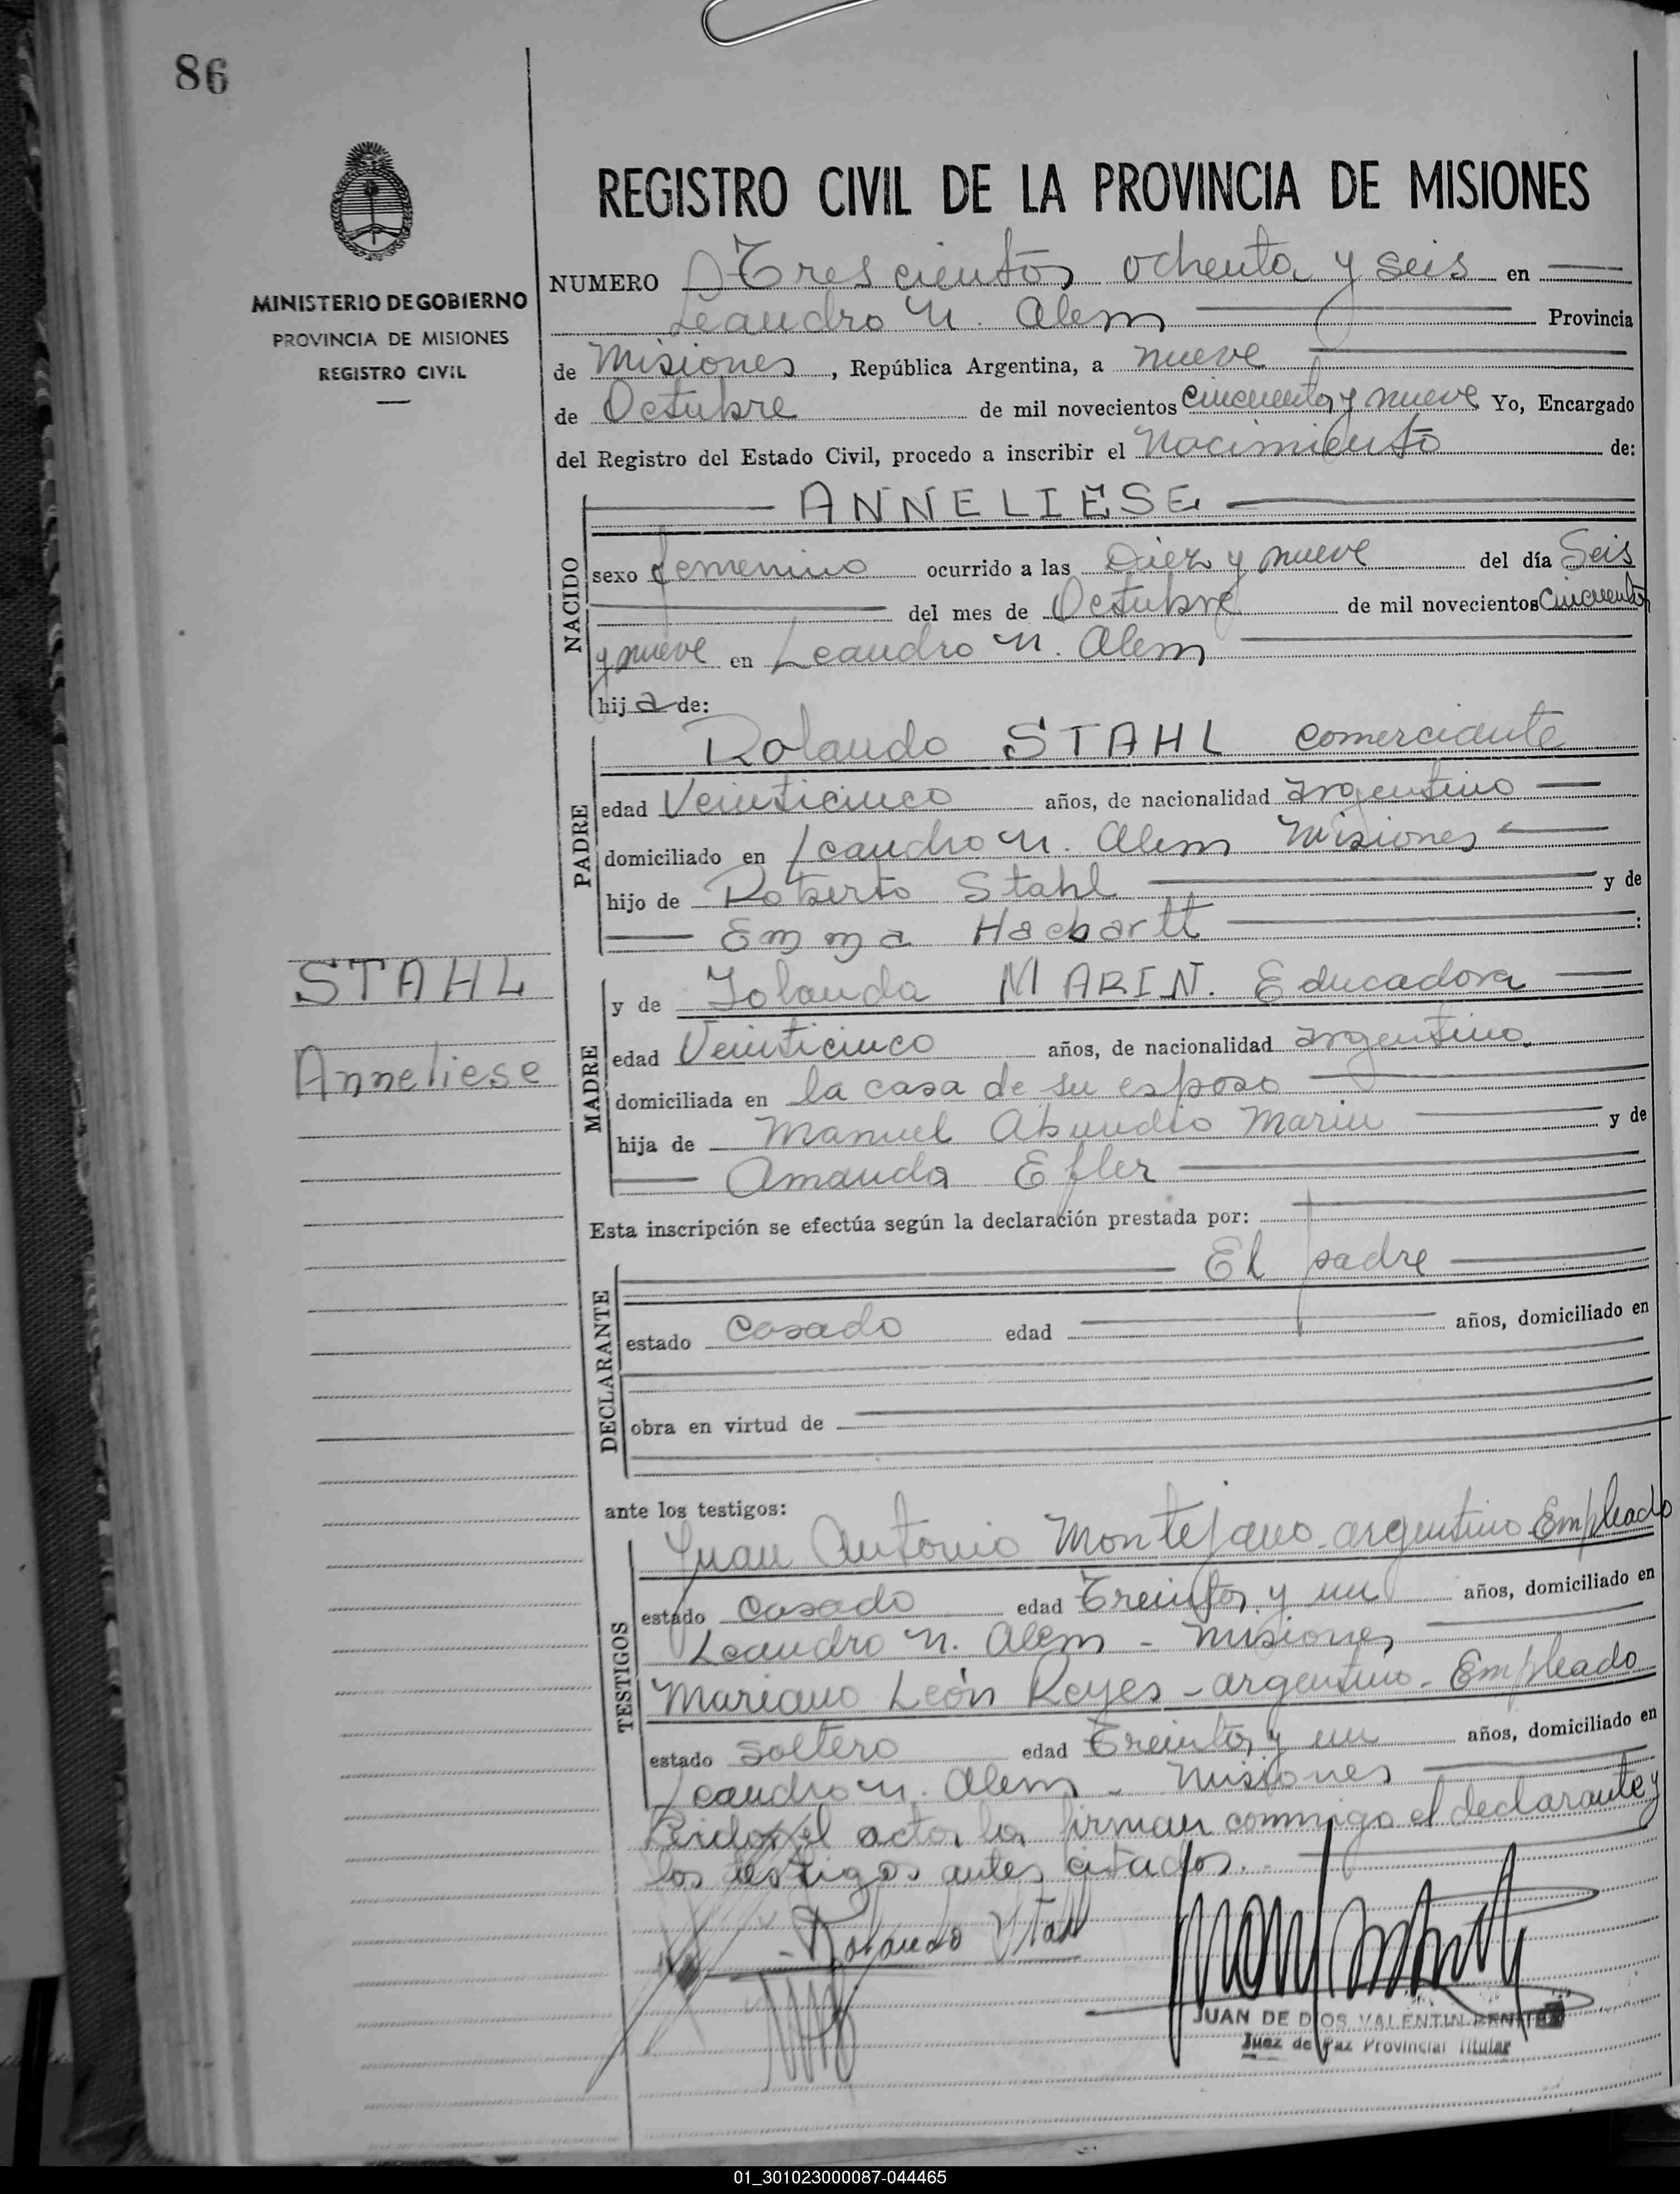 86
REGISTRO CIVIL DE LA PROVINCIA DE MISIONES
MINISTERIO DE GOBIERNO
PROVINCIA DE MISIONES
REGISTRO CIVIL
NUMERO Trescientos ochenta y seis en
Leandro N. Alem Provincia
de Misiones, República Argentina, a nueve
de Octubre de mil novecientos cincuenta y nueve Yo, Encargado
del Registro del Estado Civil, procedo a inscribir el Nacimiento de:
NACIDO
ANNELIESE
sexo femenino ocurrido a las Diez y nueve del día Seis
del mes de Octubre de mil novecientos Cincuenta
y nueve en Leandro N. Alem
hija de:
PADRE
Rolando STAHL comerciante
edad Veinticinco años, de nacionalidad argentino
domiciliado en Leandro N. Alem Misiones
hijo de Roberto Stahl y de
Emma Hachartt:
STAHL
Anneliese
MADRE
y de Iolanda MARIN. Educadora
edad Veinticinco años, de nacionalidad argentina
domiciliada en la casa de su esposo
hija de Manuel Abundio Marin y de
Amanda Efler
Esta inscripción se efectúa según la declaración prestada por:
DECLARANTE
El padre
estado casado edad años, domiciliado en
obra en virtud de
ante los testigos:
TESTIGOS
Juan Antonio Montejano - argentino Empleado
estado casado edad Treinta y un años, domiciliado en
Leandro N. Alem - Misiones
Mariano León Reyes - argentino - Empleado
estado soltero edad Treinta y un años, domiciliado en
Leandro N. Alem - Misiones
el acta, la firman conmigo el declarante y
los testigos antes citados.
Rolando Stahl
JUAN DE DIOS VALENTIN BENITEZ
Juez de Paz Provincial Titular
01_301023000087-044465